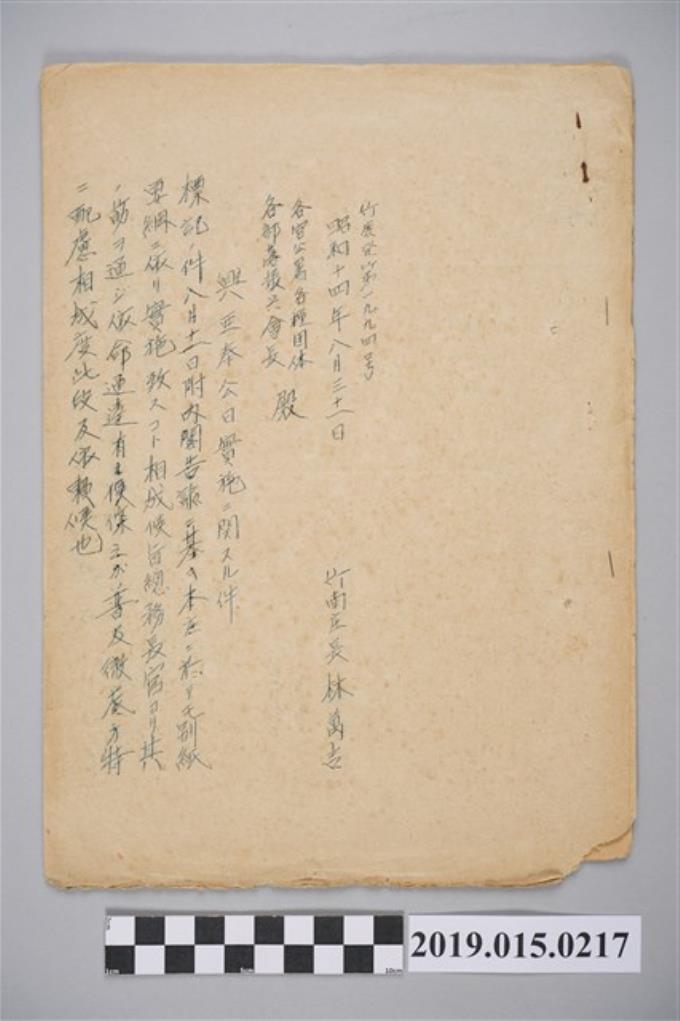 竹庶發第一九九四号
昭和十四年八月三十一日
竹南庄長 林萬吉
各官公署各種団体
各部落振興會長 殿
興亜奉公日實施ニ関スル件
標記ノ件八月十一日附內閣告諭ニ基キ本庄ニ於テモ別紙
要綱ニ依リ實施致スコト相成候旨總務長官ヨリ其
ノ筋ヲ通ジ依命通達有之候條之ガ普及徹底方特
ニ配慮相成度此段及依賴候也
2019.015.0217
1cm
5cm
10cm